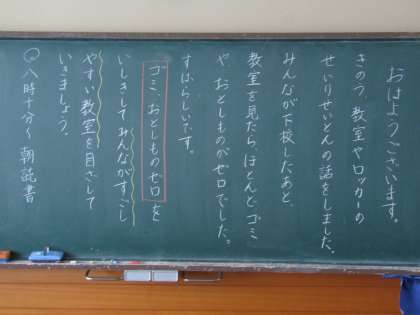 おはようございます。
きのう、教室やロッカーの
せいりせいとんの話をしました。
みんなが下校したあと、
教室を見たら、ほとんど、ゴミ
や、おとしものがゼロでした。
すばらしいです。
ゴミ、おとしものゼロを
いしきして、みんながすごし
やすい教室を目ざして
いきましょう。
〇八時十分〜朝読書